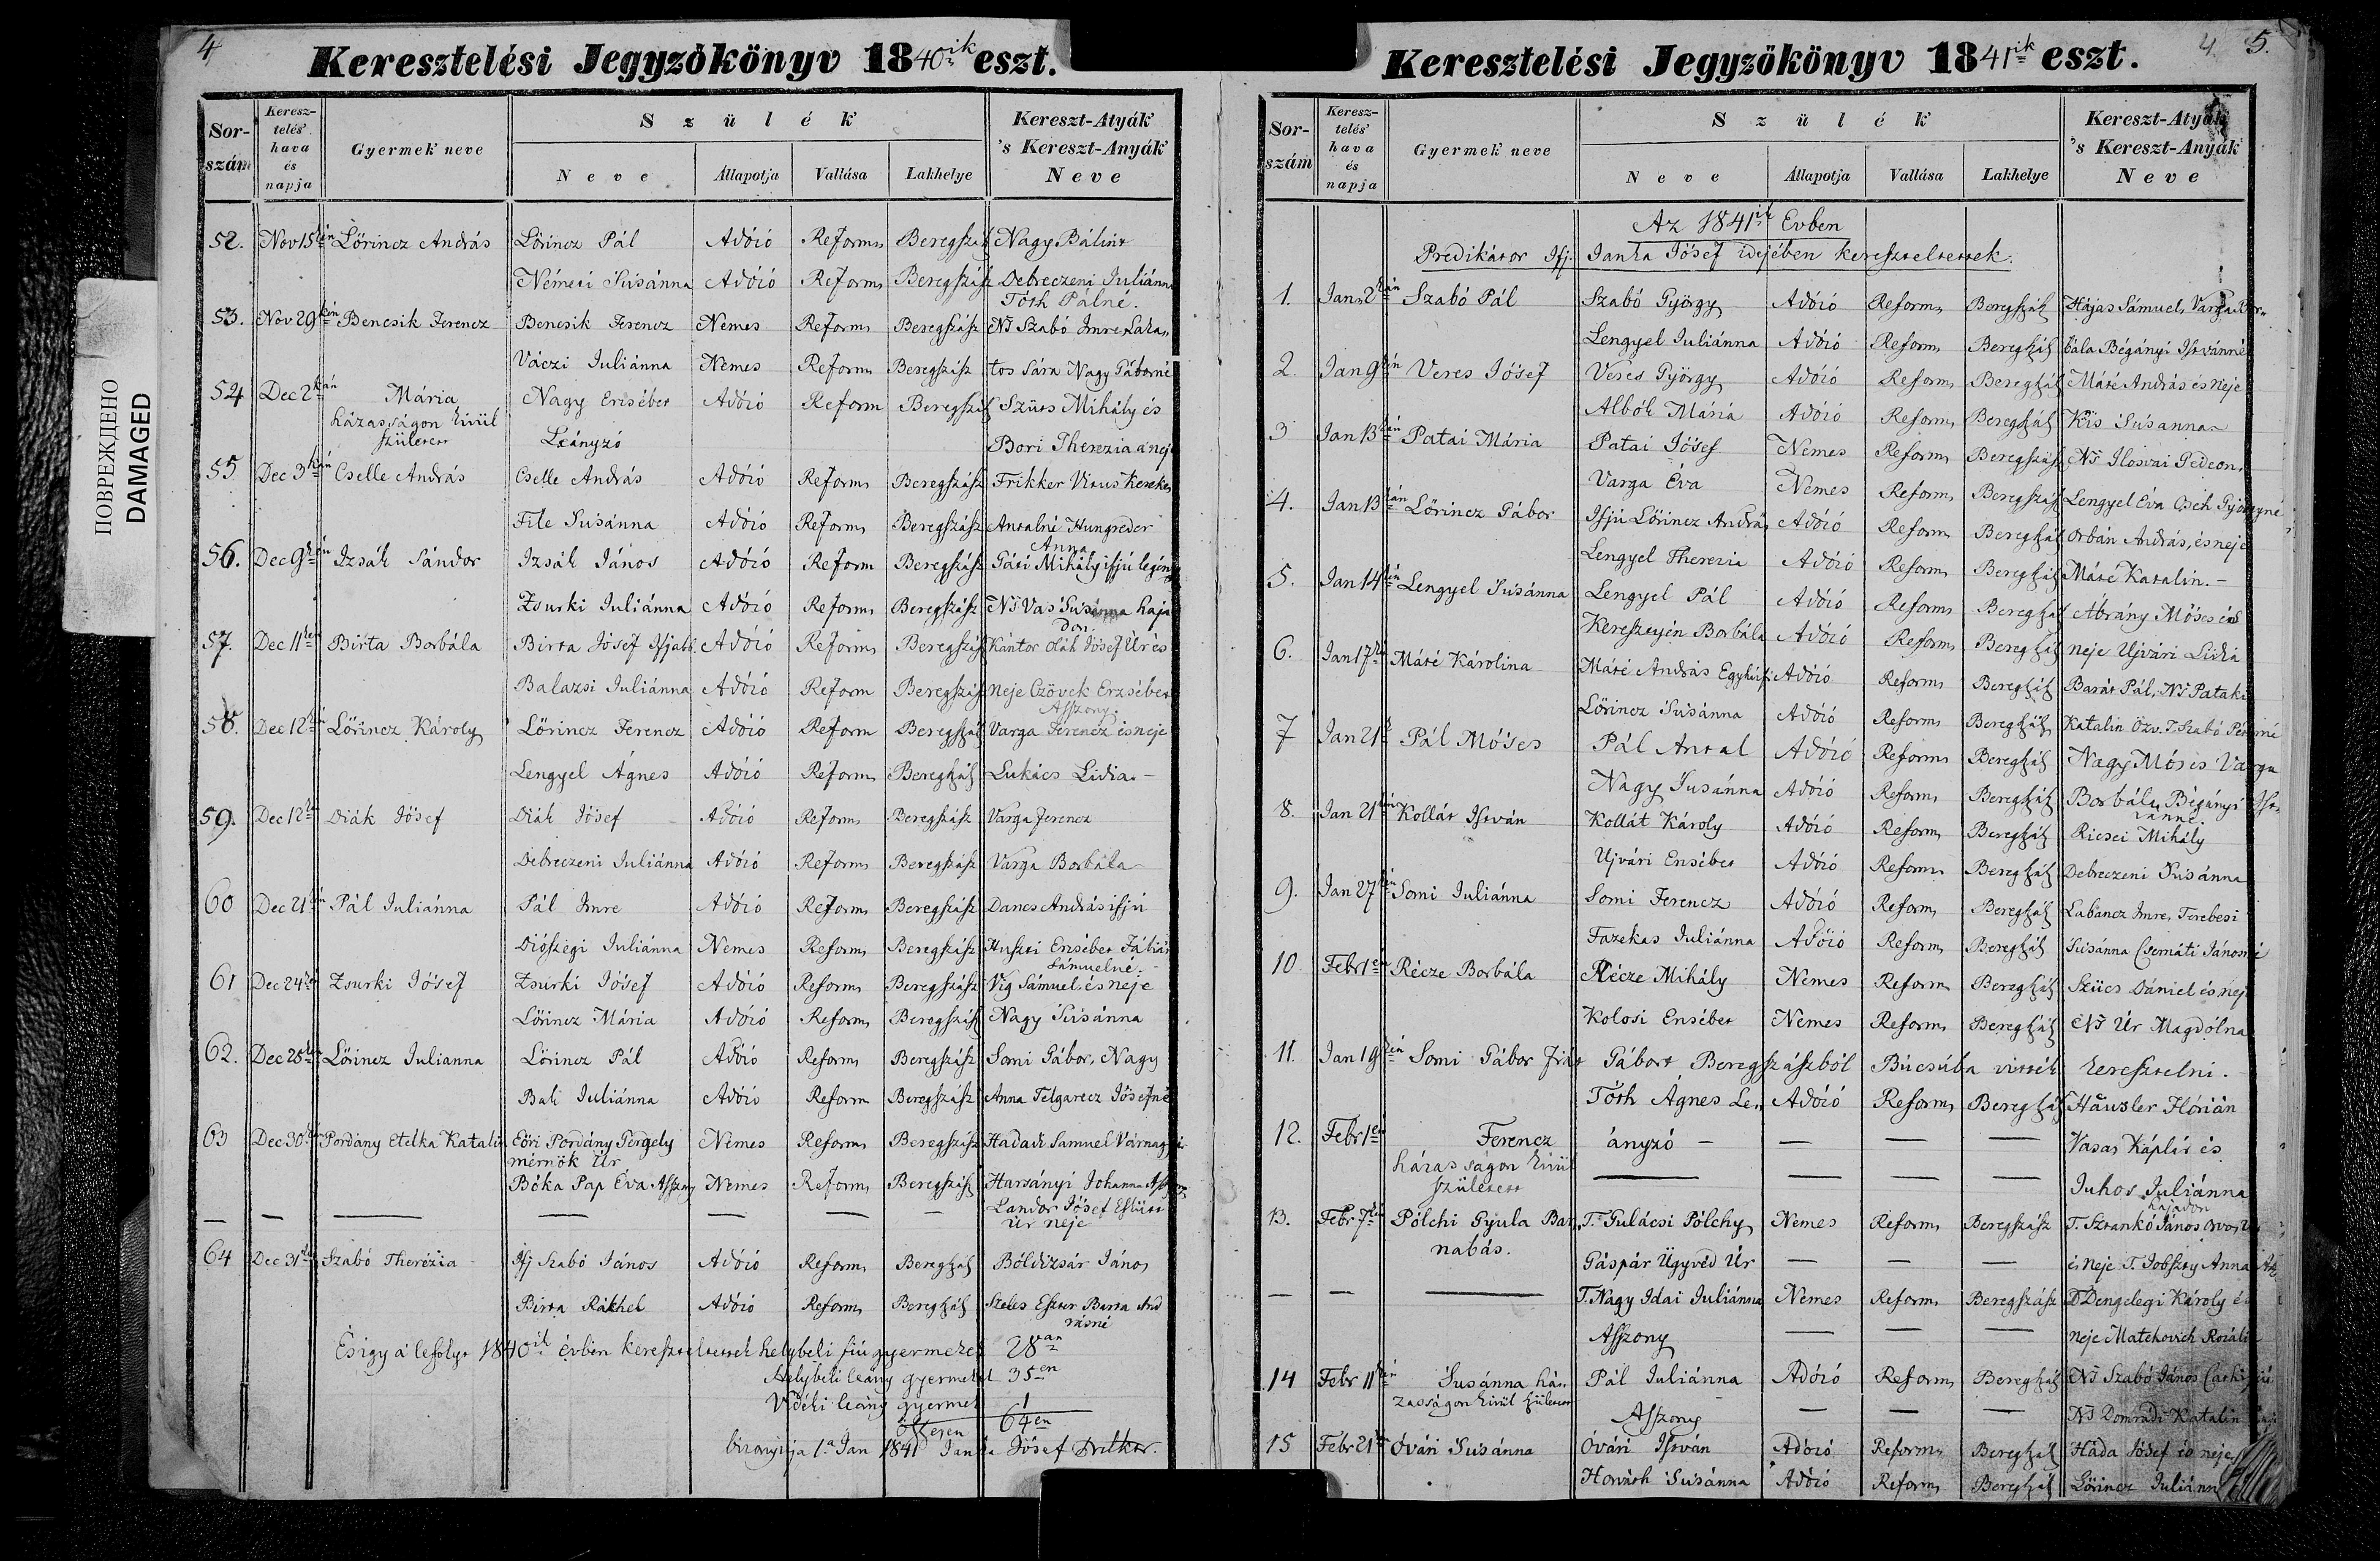 4
Keresztelési Jegyzőkönyv 1840ik eszt.
Sor-szám Keresz-telés' hava és napja Gyermek neve Szülék Neve Állapotja Vallása Lakhelye Kereszt-Atyák 's Kereszt-Anyák Neve
52. Nov 15kén Lörincz András Lörincz Pál Adózó Reform Beregszász Nagy Bálint
Németi Susánna Adózó Reform Beregszász Debreczeni Juliánna
Tóth Pálné.
53. Nov 29kén Bencsik Ferencz Bencsik Ferencz Nemes Reform Beregszász Ns Szabó Imre Laka,
Váczi Juliánna Nemes Reform Beregszász tos Sára Nagy Gáborné
54 Dec 2kán Mária Nagy Ersébet Adózó Reform Beregszász Szüts Mihály és
házasságon kívül
született Leányzó Bori Therezia a neje
55 Dec 3kán Cselle András Cselle András Adózó Reform Beregszász Frikker Vitus Kerekes
File Susánna Adózó Reform Beregszász Antalné Hungreder
Anna
56. Dec 9kén Izsák Sándor Izsák János Adózó Reform Beregszász Gáti Mihály ifjú legény
Zsurki Juliánna Adózó Reform Beregszász Ns Vas Susánna haja
don
57. Dec 11kén Birta Borbála Birta Jósef Ifjabb. Adózó Reform Beregszász Kántor Oláh Jósef Úr és
Balazsi Juliánna Adózó Reform Beregszász neje Czövek Erzsébet
Aſſzony.
58. Dec 12kén Lörincz Károly Lörincz Ferencz Adózó Reform Beregszász Varga Ferencz és neje
Lengyel Ágnes Adózó Reform Beregszász Lukács Lidia. -
59. Dec 12kén Diák Jósef Diák Jósef Adózó Reform Beregszász Varga Ferencz
Debreczeni Juliánna Adózó Reform Beregszász Varga Borbála
60 Dec 21kén Pál Juliánna Pál Imre Adózó Reform Beregszász Dancs András ifjú
Diószegi Juliánna Nemes Reform Beregszász Huszti Ersébet Fábián
Sámuelné. -
61 Dec 24kén Zsurki Jósef Zsurki Jósef Adózó Reform Beregszász Vig Sámuel és neje
Lörincz Mária Adózó Reform Beregszász Nagy Susánna
62. Dec 28kán Lörincz Julianna Lörincz Pál Adózó Reform Beregszász Somi Gábor, Nagy
Bak Juliánna Adózó Reform Beregszász Anna Telgarecz Jósefné
63 Dec 30kán Pordány Etelka Katalin Eöri Pordány Gergely Nemes Reform Beregszász Hadadi Samuel Várnagy
mérnök Úr
Bóka Pap Éva Aſſzony Nemes Reform Beregszász Harsányi Johanna Aſſzony
Sandor Jósef Esküt
úr neje
64 Dec 31kén Szabó Therézia - Ifj Szabó János Adózó Reform Beregszász Bóldizsár János
Birta Rákhel Adózó Reform Beregszász Szeles Eszter Barta And
rásné
És így a' lefolyt 1840ik évben kereszteltettek helybeli fiú gyermekek 28an
Helybeli leány gyermekek 35en
Vidéki leány gyermek 1
öszvesen 64en
bizonyitja 1a Jan 1841 Janka Jósef
4 5.
Keresztelési Jegyzőkönyv 1841ik eszt.
Sor-szám Keresz-telés' hava és napja Gyermek neve Szülék Neve Állapotja Vallása Lakhelye Kereszt-Atyák 's Kereszt-Anyák Neve
Az 1841ik Evben
Predikátor Ifj. Janka Jósef idejében kereszteltettek.
1. Jan. 2kán Szabó Pál Szabó György Adózó Reform Beregszász Hájas Sámuel, Varga Bor
Lengyel Juliánna Adózó Reform Beregszász bála Bégányi Istvánné
2. Jan 9kén Veres Jósef Veres György Adózó Reform Beregszász Máté András és neje
Albók Mária Adózó Reform Beregszász Kis Susanna
3 Jan 13kán Patai Mária Patai Jósef Nemes Reform Beregszász Ns Ilosvai Gedeon,
Varga Éva Nemes Reform Beregszász Lengyel Éva Cseh Györgyné
4. Jan 13kán Lörincz Gábor Ifjú Lörincz András Adózó Reform Beregszász Orbán András, és neje
Lengyel Therezia Adózó Reform Beregszász Máté Katalin. -
5. Jan 14kén Lengyel Susánna Lengyel Pál Adózó Reform Beregszász Ábrány Móses és
Keresztyén Borbála Adózó Reform Beregszász neje Ujvári Lidia
6. Jan 17kén Máté Károlina Máté András Egyházfi Adózó Reform Beregszász Barát Pál, Ns Pataki
Lörincz Susánna Adózó Reform Beregszász Katalin Özv. T. Szabó Péterné
7 Jan 21k Pál Móses Pál Antal Adózó Reform Beregszász Nagy Móses Varga
Nagy Susánna Adózó Reform Beregszász Borbála, Bégányi Ist
vánné.
8. Jan 21kén Kollát István Kollát Károly Adózó Reform Beregszász Ricsei Mihály
Ujvári Ersébet Adózó Reform Beregszász Debreczeni Susánna
9. Jan 27kén Somi Juliánna Somi Ferencz Adózó Reform Beregszász Labancz Imre, Terebesi
Fazekas Juliánna Adózó Reform Beregszász Susánna Csernáti Jánosné
10 Febr 1én Récze Borbála Récze Mihály Nemes Reform Beregszász Szücs Dániel és neje
Kolosi Ersébet Nemes Reform Beregszász Ns Úr Magdólna
11. Jan 19kén Somi Gábor fiát Gábort Beregszászból Búcsúba vitték keresztelni.
Tóth Ágnes Le, Adózó Reform Beregszász Häusler Flórián
12. Febr 1én Ferencz ányzó - — — — Vasas Káplár és
házasságon kívül
született — — — — Juhos Juliánna
hajadon
13. Febr 7kén Pólchi Gyula Bar, T. Gulácsi Pólchy Nemes Reform Beregszász T. Sztankó János Orvos Úr
nabás. Gáspár Ügyvéd Úr — — — és neje T. Jobszty Anna
— — — T. Nagy Idai Juliánna Nemes Reform Beregszász T Dengelegi Károly és
Aſſzony — — — neje Matekovich Rozália
14 Febr 11kén Susánna há, Pál Juliánna Adózó Reform Beregszász Ns Szabó János
zasságon kívül született Aſſzony — — — Ns Domrádi Katalin
15 Febr 21kén Óvári Susánna Óvári István Adózó Reform Beregszász Háda Jósef és neje,
Horváth Susánna Adózó Reform Beregszász Lörincz Juliánna
ПОВРЕЖДЕНО
DAMAGED